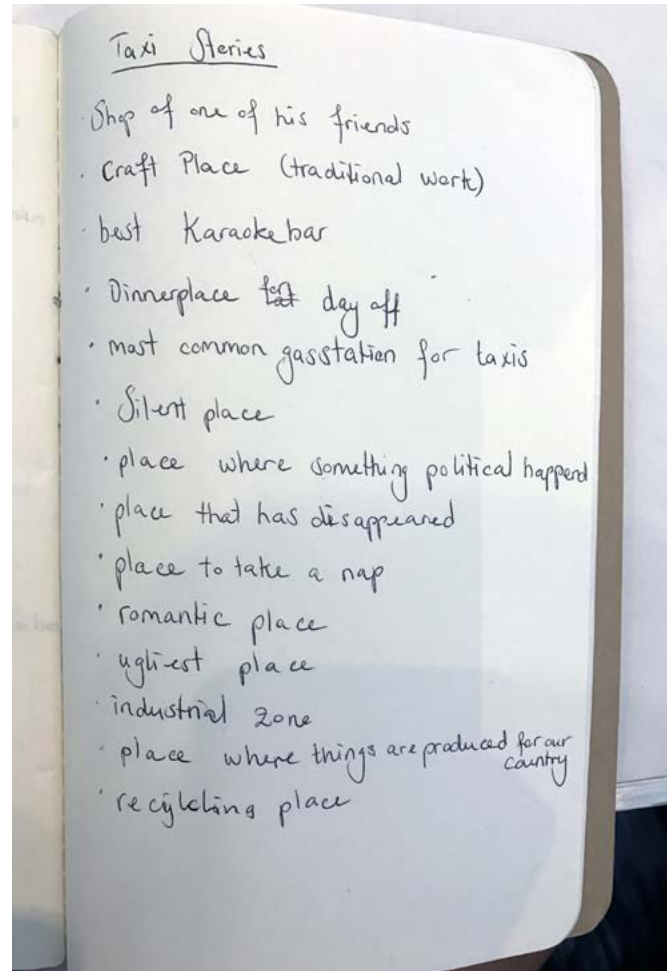 Taxi Steries
· Shop of one of his friends
· Craft Place (traditional work)
· best Karaokebar
· Dinnerplace for day off
· most common gasstation for taxis
· Silent place
· place where something political happend
· place that has disappeared
· place to take a nap
· romantic place
· ugliest place
· industrial zone
· place where things are produced for our country
· recyklcling place